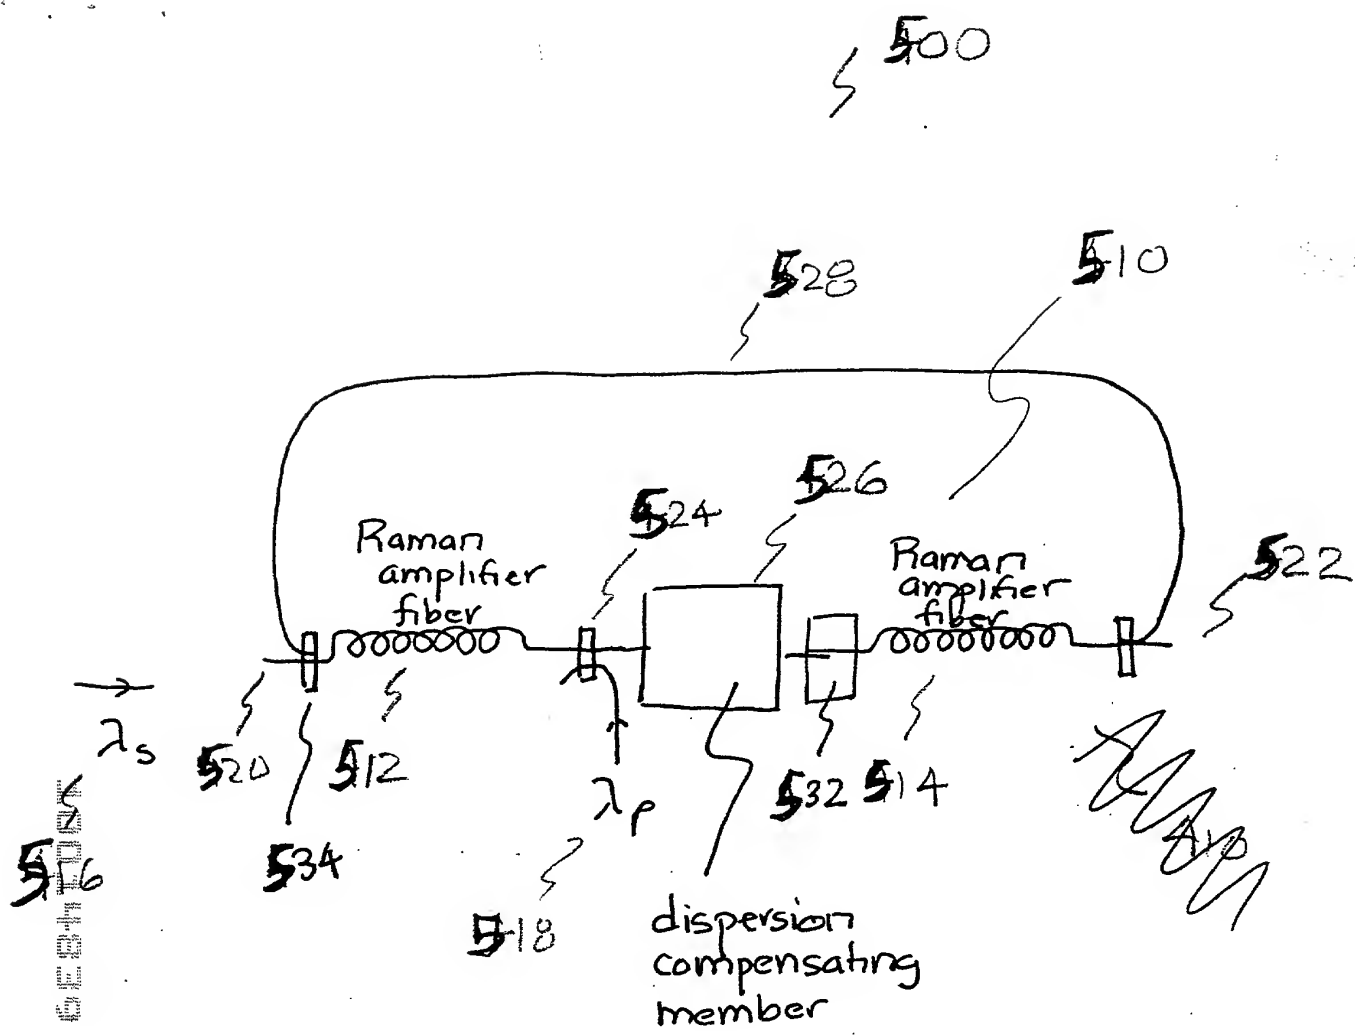 500
528
510
526
524
522
Raman
amplifier
fiber
Raman
amplifier
fiber
λs
520
512
λp
532
514
516
534
518
dispersion
compensating
member